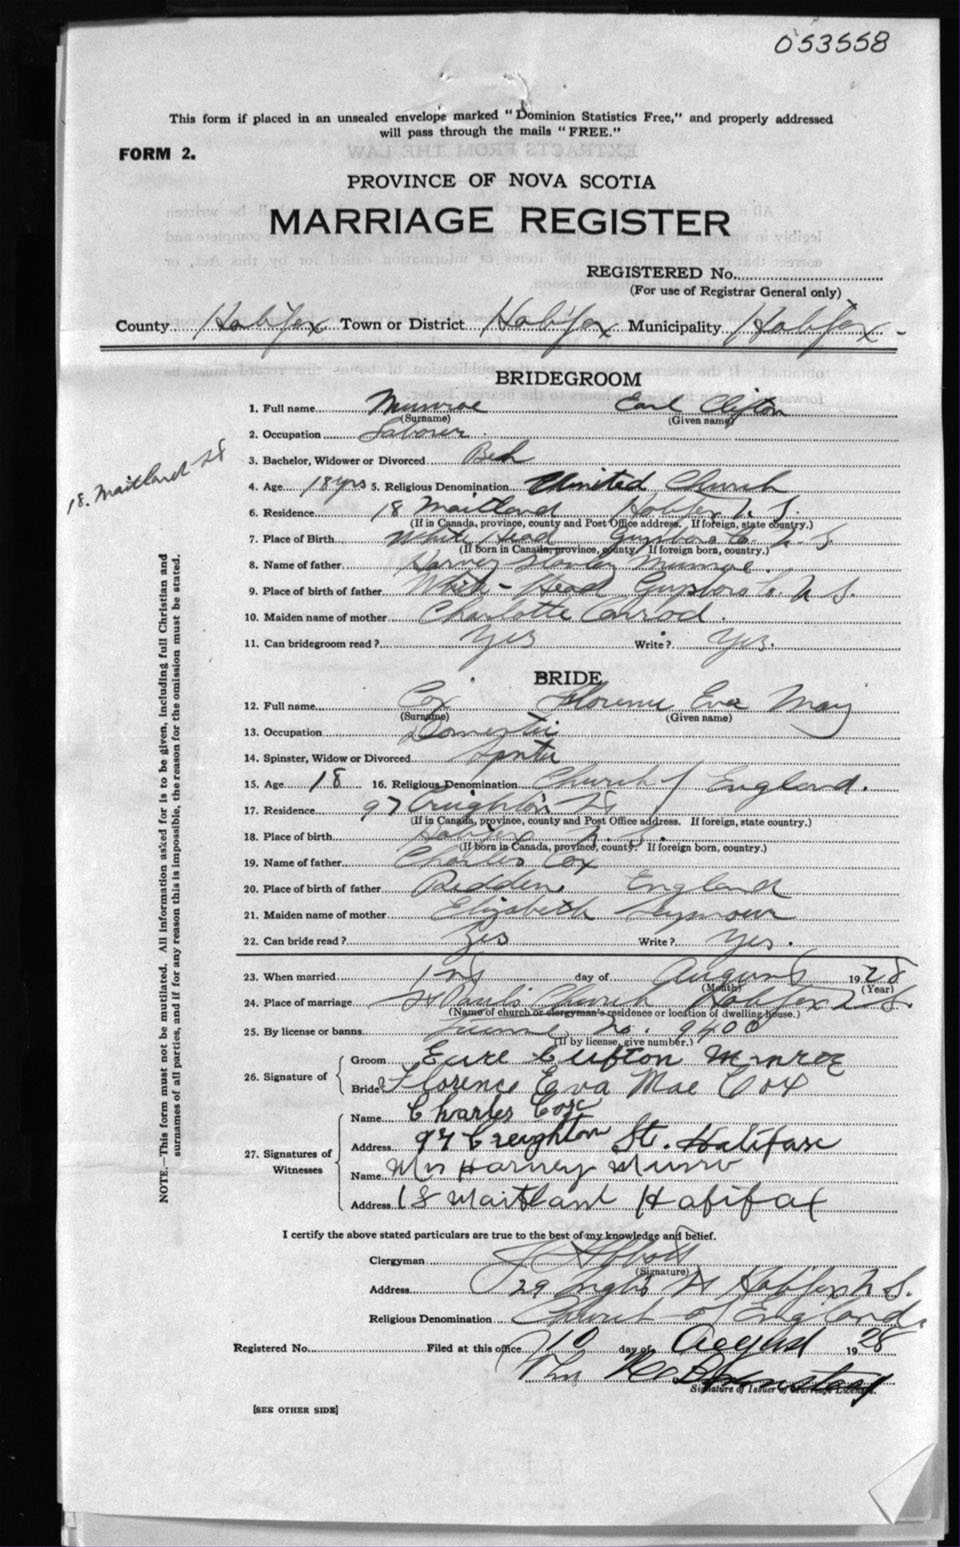 053558
This form if placed in an unsealed envelope marked "Dominion Statistics Free," and properly addressed
will pass through the mails "FREE."
FORM 2.
PROVINCE OF NOVA SCOTIA
MARRIAGE REGISTER
REGISTERED No.
(For use of Registrar General only)
County Halifax Town or District Halifax Municipality Halifax
BRIDEGROOM
1. Full name Munroe Earl Clifton
(Surname) (Given name)
2. Occupation Laborer
3. Bachelor, Widower or Divorced Bch
18. Maitland St
4. Age 18 yrs 5. Religious Denomination United Church
6. Residence 18 Maitland Halifax N. S.
(If in Canada, province, county and Post Office address. If foreign, state country.)
7. Place of Birth White Head Guysboro Co. N. S.
(If born in Canada, province, county If foreign born, country.)
8. Name of father Harvey Munroe.
9. Place of birth of father White-Head Guysboro Co. N. S.
10. Maiden name of mother Charlotte Conrod.
11. Can bridegroom read? Yes Write? Yes.
BRIDE
12. Full name Cox Florence Eva May
(Surname) (Given name)
13. Occupation Domestic
14. Spinster, Widow or Divorced Spnter
15. Age 18 16. Religious Denomination Church of England.
17. Residence 97 Creighton St
(If in Canada, province, county and Post Office address. If foreign, state country.)
18. Place of birth Halifax N. S.
(If born in Canada, province, county. If foreign born, country.)
19. Name of father Charles Cox
20. Place of birth of father England
21. Maiden name of mother Elizabeth Seymour
22. Can bride read? Yes Write? Yes.
23. When married 1st day of August 1928
(Month) (Year)
24. Place of marriage St Paul's Church Halifax N. S.
(Name of church or clergyman's residence or location of dwelling house.)
25. By license or banns License No. 9400
(If by license, give number.)
26. Signature of
Groom Earl Clifton Munroe
Bride Florence Eva Mae Cox
27. Signatures of Witnesses
Name Charles Cox
Address 97 Creighton St. Halifax
Name Mrs Harvey Munro
Address 18 Maitland Halifax
I certify the above stated particulars are true to the best of my knowledge and belief.
Clergyman Abbott
(Signature)
Address 29 St Halifax N. S.
Religious Denomination Church of England.
Registered No. Filed at this office 10 day of August 1928
Signature of Issuer of Marriage License.
[SEE OTHER SIDE]
NOTE.—This form must not be mutilated. All information asked for is to be given, including full Christian and
surnames of all parties, and if for any reason this is impossible, the reason for the omission must be stated.